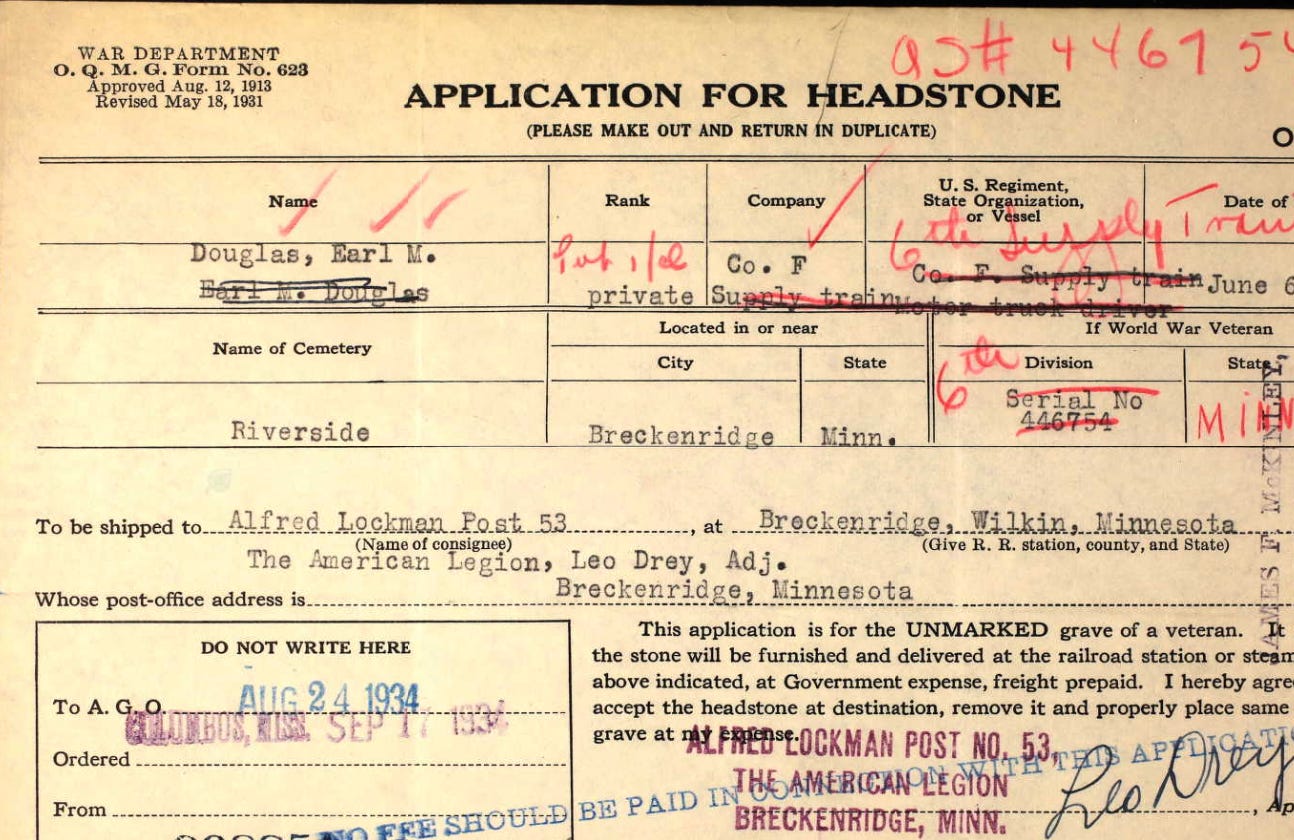 WAR DEPARTMENT
O. Q. M. G. Form No. 623
Approved Aug. 12, 1913
Revised May 18, 1931
QS# 446754
APPLICATION FOR HEADSTONE
(PLEASE MAKE OUT AND RETURN IN DUPLICATE)
O
Name
Rank
Company
U. S. Regiment,
State Organization,
or Vessel
Date of
Douglas, Earl M.
Earl M. Douglas
Pvt 1/cl
private
Co. F
Supply train
6th Supply Train
Co. F. Supply train
Motor truck driver
June 6
Name of Cemetery
Located in or near
City
State
If World War Veteran
Division
State
Riverside
Breckenridge
Minn.
6th
Serial No
446754
MINN
To be shipped to Alfred Lockman Post 53, at Breckenridge, Wilkin, Minnesota
(Name of consignee) (Give R. R. station, county, and State)
The American Legion, Leo Drey, Adj.
Whose post-office address is Breckenridge, Minnesota
JAMES F. McKINLEY,
DO NOT WRITE HERE
To A. G. O. AUG 24 1934
COLUMBUS, MISS. SEP 17 1934
Ordered
From
This application is for the UNMARKED grave of a veteran. It
the stone will be furnished and delivered at the railroad station or steam
above indicated, at Government expense, freight prepaid. I hereby agre
accept the headstone at destination, remove it and properly place same
grave at my expense.
ALFRED LOCKMAN POST NO. 53,
THE AMERICAN LEGION
BRECKENRIDGE, MINN.
Leo Drey
, Ap
NO FEE SHOULD BE PAID IN CONNECTION WITH THIS APPLICATI